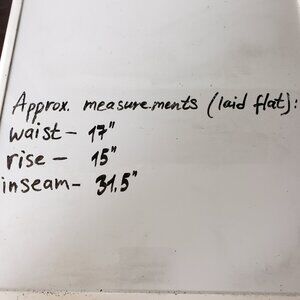 Approx. measurements (laid flat):
waist - 17"
rise - 15"
inseam - 31.5"